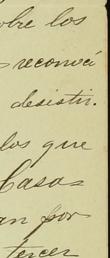 obre los
reconocí
desistir.
los que
Casa-
an por
tercer